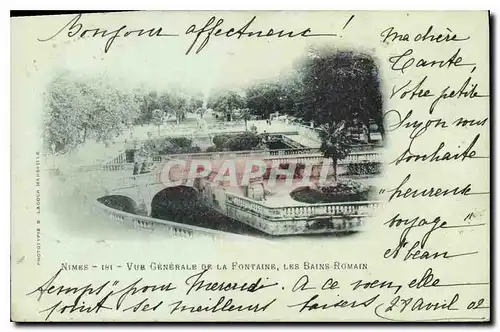 Bonjour affectueux !
Ma chère
Tante
Votre petite
vous
souhaite
"heureux
voyage"
et beau
temps" pour Mercredi. A ce soir, elle
joint ses meilleurs baisers 27 Avril 02
NIMES - 181 - VUE GÉNÉRALE DE LA FONTAINE, LES BAINS ROMAIN
PHOTOTYPIE LACOUR MARSEILLE
CPARAMA